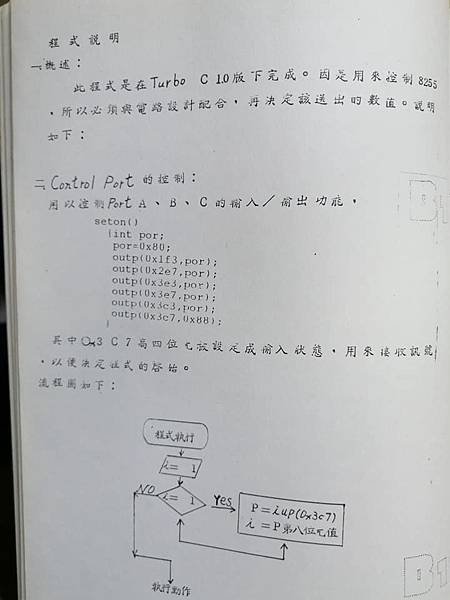 程式說明
一、概述：
此程式是在Turbo C 1.0版下完成。因是用來控制8255
，所以必須與電路設計配合，再決定該送出的數值。說明
如下：
二、Control Port 的控制：
用以控制Port A、B、C的輸入／輸出功能，
seton()
{int por;
por=0x80;
outp(0x1f3,por);
outp(0x2e7,por);
outp(0x3e3,por);
outp(0x3e7,por);
outp(0x3c3,por);
outp(0x3c7,0x88);}
其中0x3C7高四位元被設定成輸入狀態，用來接收訊號
，以便決定程式的啓始。
流程圖如下：
程式執行
i= 1
NO
i= 1
Yes
P=iup(0x3c7)
i=P第八位元值
執行動作